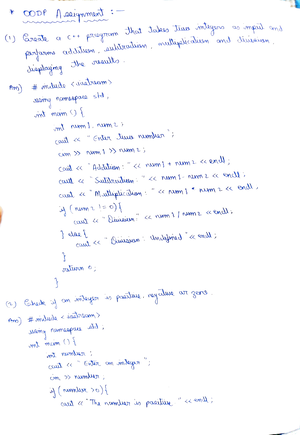 * OODP Assignment :-
(1) Create a c++ program that takes two integers as input and
performs addition, subtraction, multiplication and division
displaying the results.
Ans) # include <iostream>
using namespace std;
int main () {
int num1, num2;
cout << "Enter two number";
cin >> num1 >> num2;
cout << "Addition: " << num1 + num2 << endl;
cout << "Subtraction: " << num1 - num2 << endl;
cout << "Multiplication: " << num1 * num2 << endl;
if (num2 != 0) {
cout << "Division" << num1 / num2 << endl;
} else {
cout << "Division: Undefined" << endl;
}
return 0;
}
(2) Check if an integer is positive, negative or zero.
Ans) # include <iostream>
using namespace std;
int main () {
int number;
cout << "Enter an integer";
cin >> number;
if (number > 0) {
cout << "The number is positive" << endl;